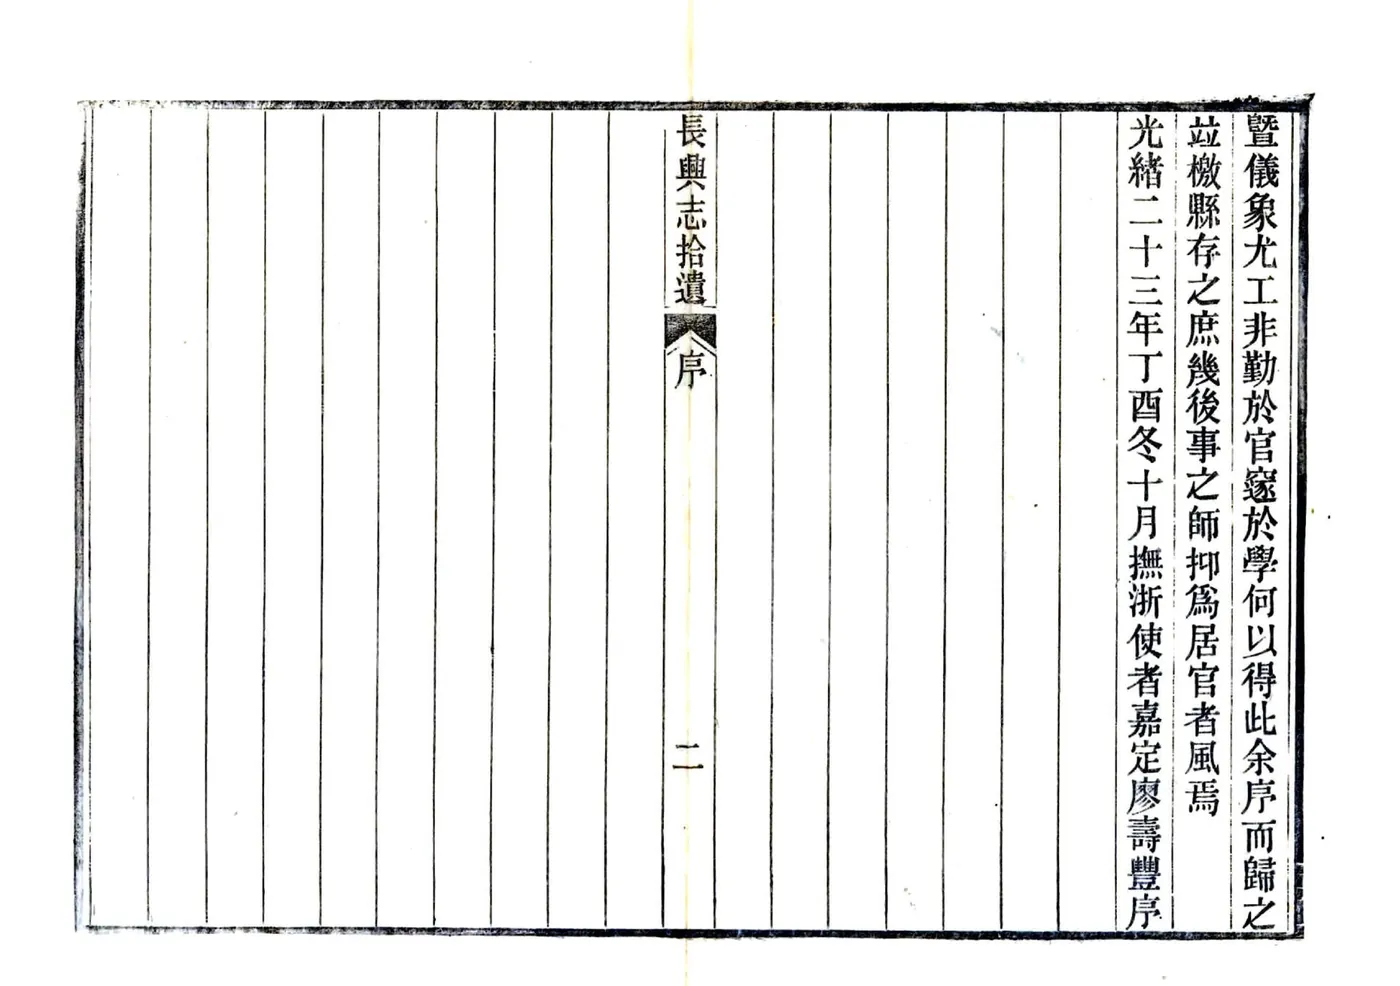 曁儀象尤工非勤於官窾於學何以得此余序而歸之
並檄縣存之庶幾後事之師抑爲居官者風焉
光緒二十三年丁酉冬十月撫浙使者嘉定廖壽豐序
長興志拾遺 序 二